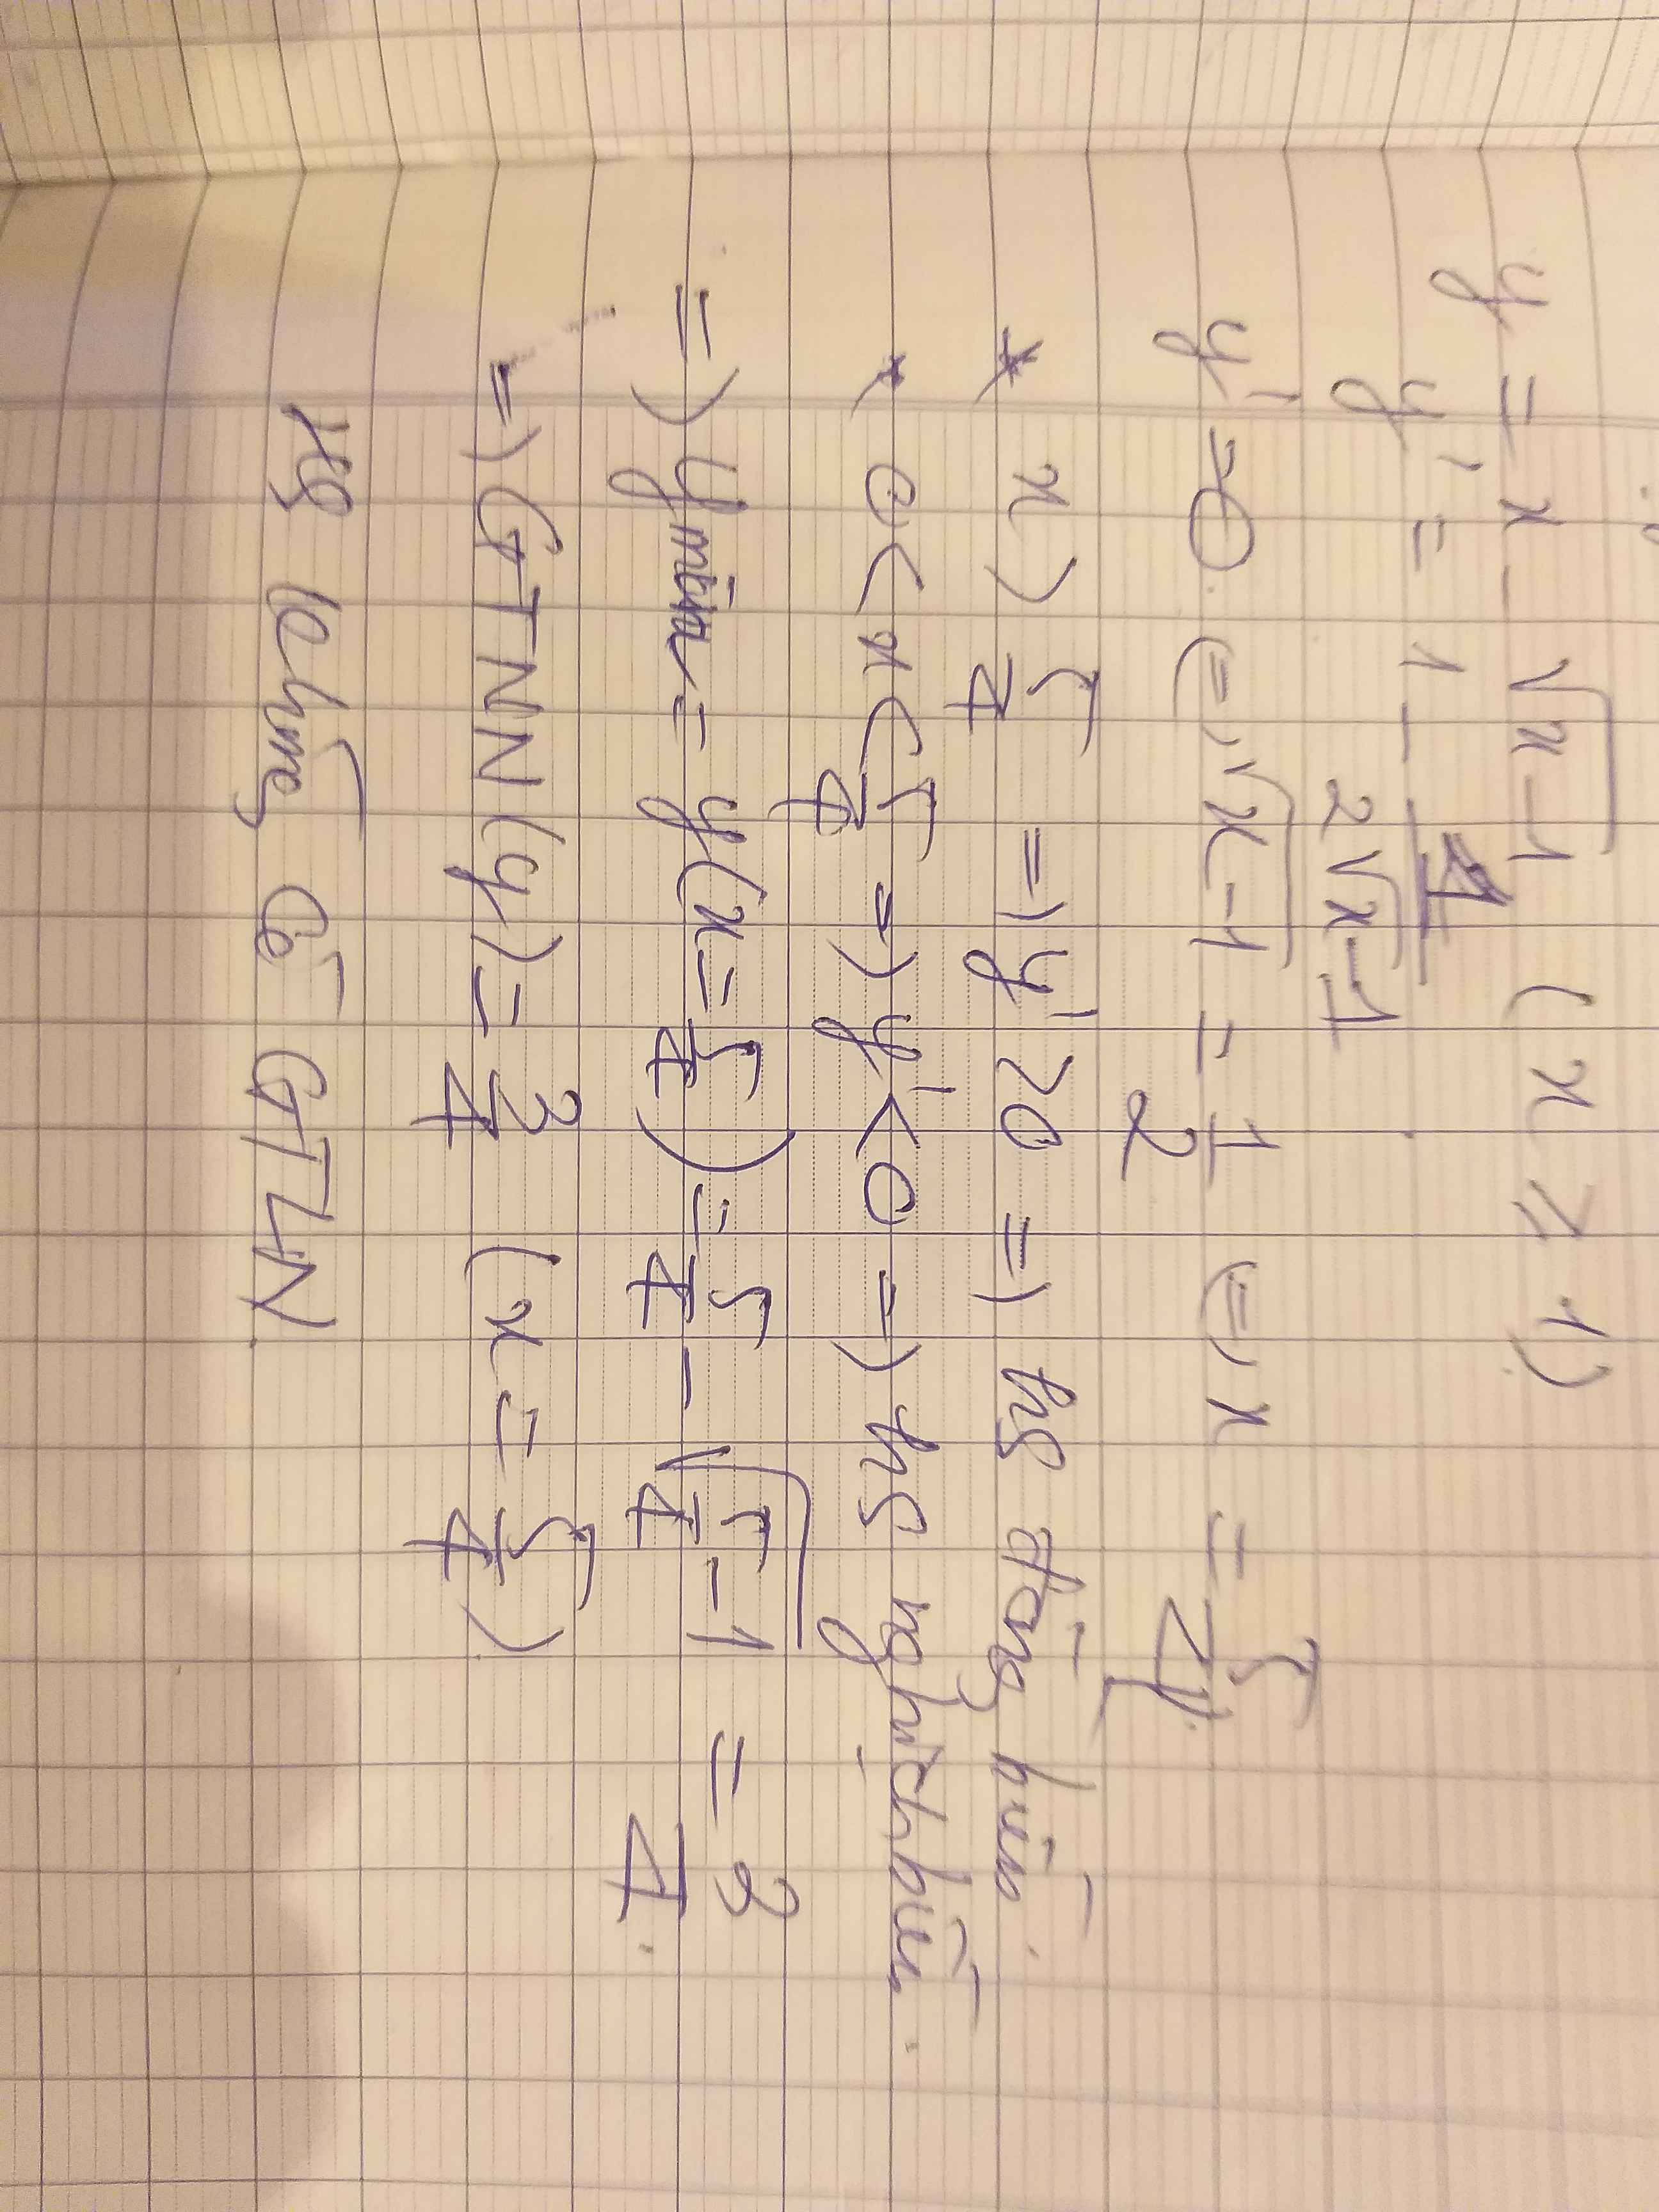 y = x - √(x-1) (x ≥ 1)
y' = 1 - 1/(2√(x-1))
y' = 0 (=) √(x-1) = 1/2 (=) x = 5/4.
* x > 5/4 =) y' > 0 =) hS đồng biến.
* 0 < x < 5/4 =) y' < 0 =) hS nghịch biến.
=) y min = y(x = 5/4) = 5/4 - √(5/4 - 1) = 3/4.
=) GTNN (y) = 3/4 (x = 5/4)
HS không có GTLN.